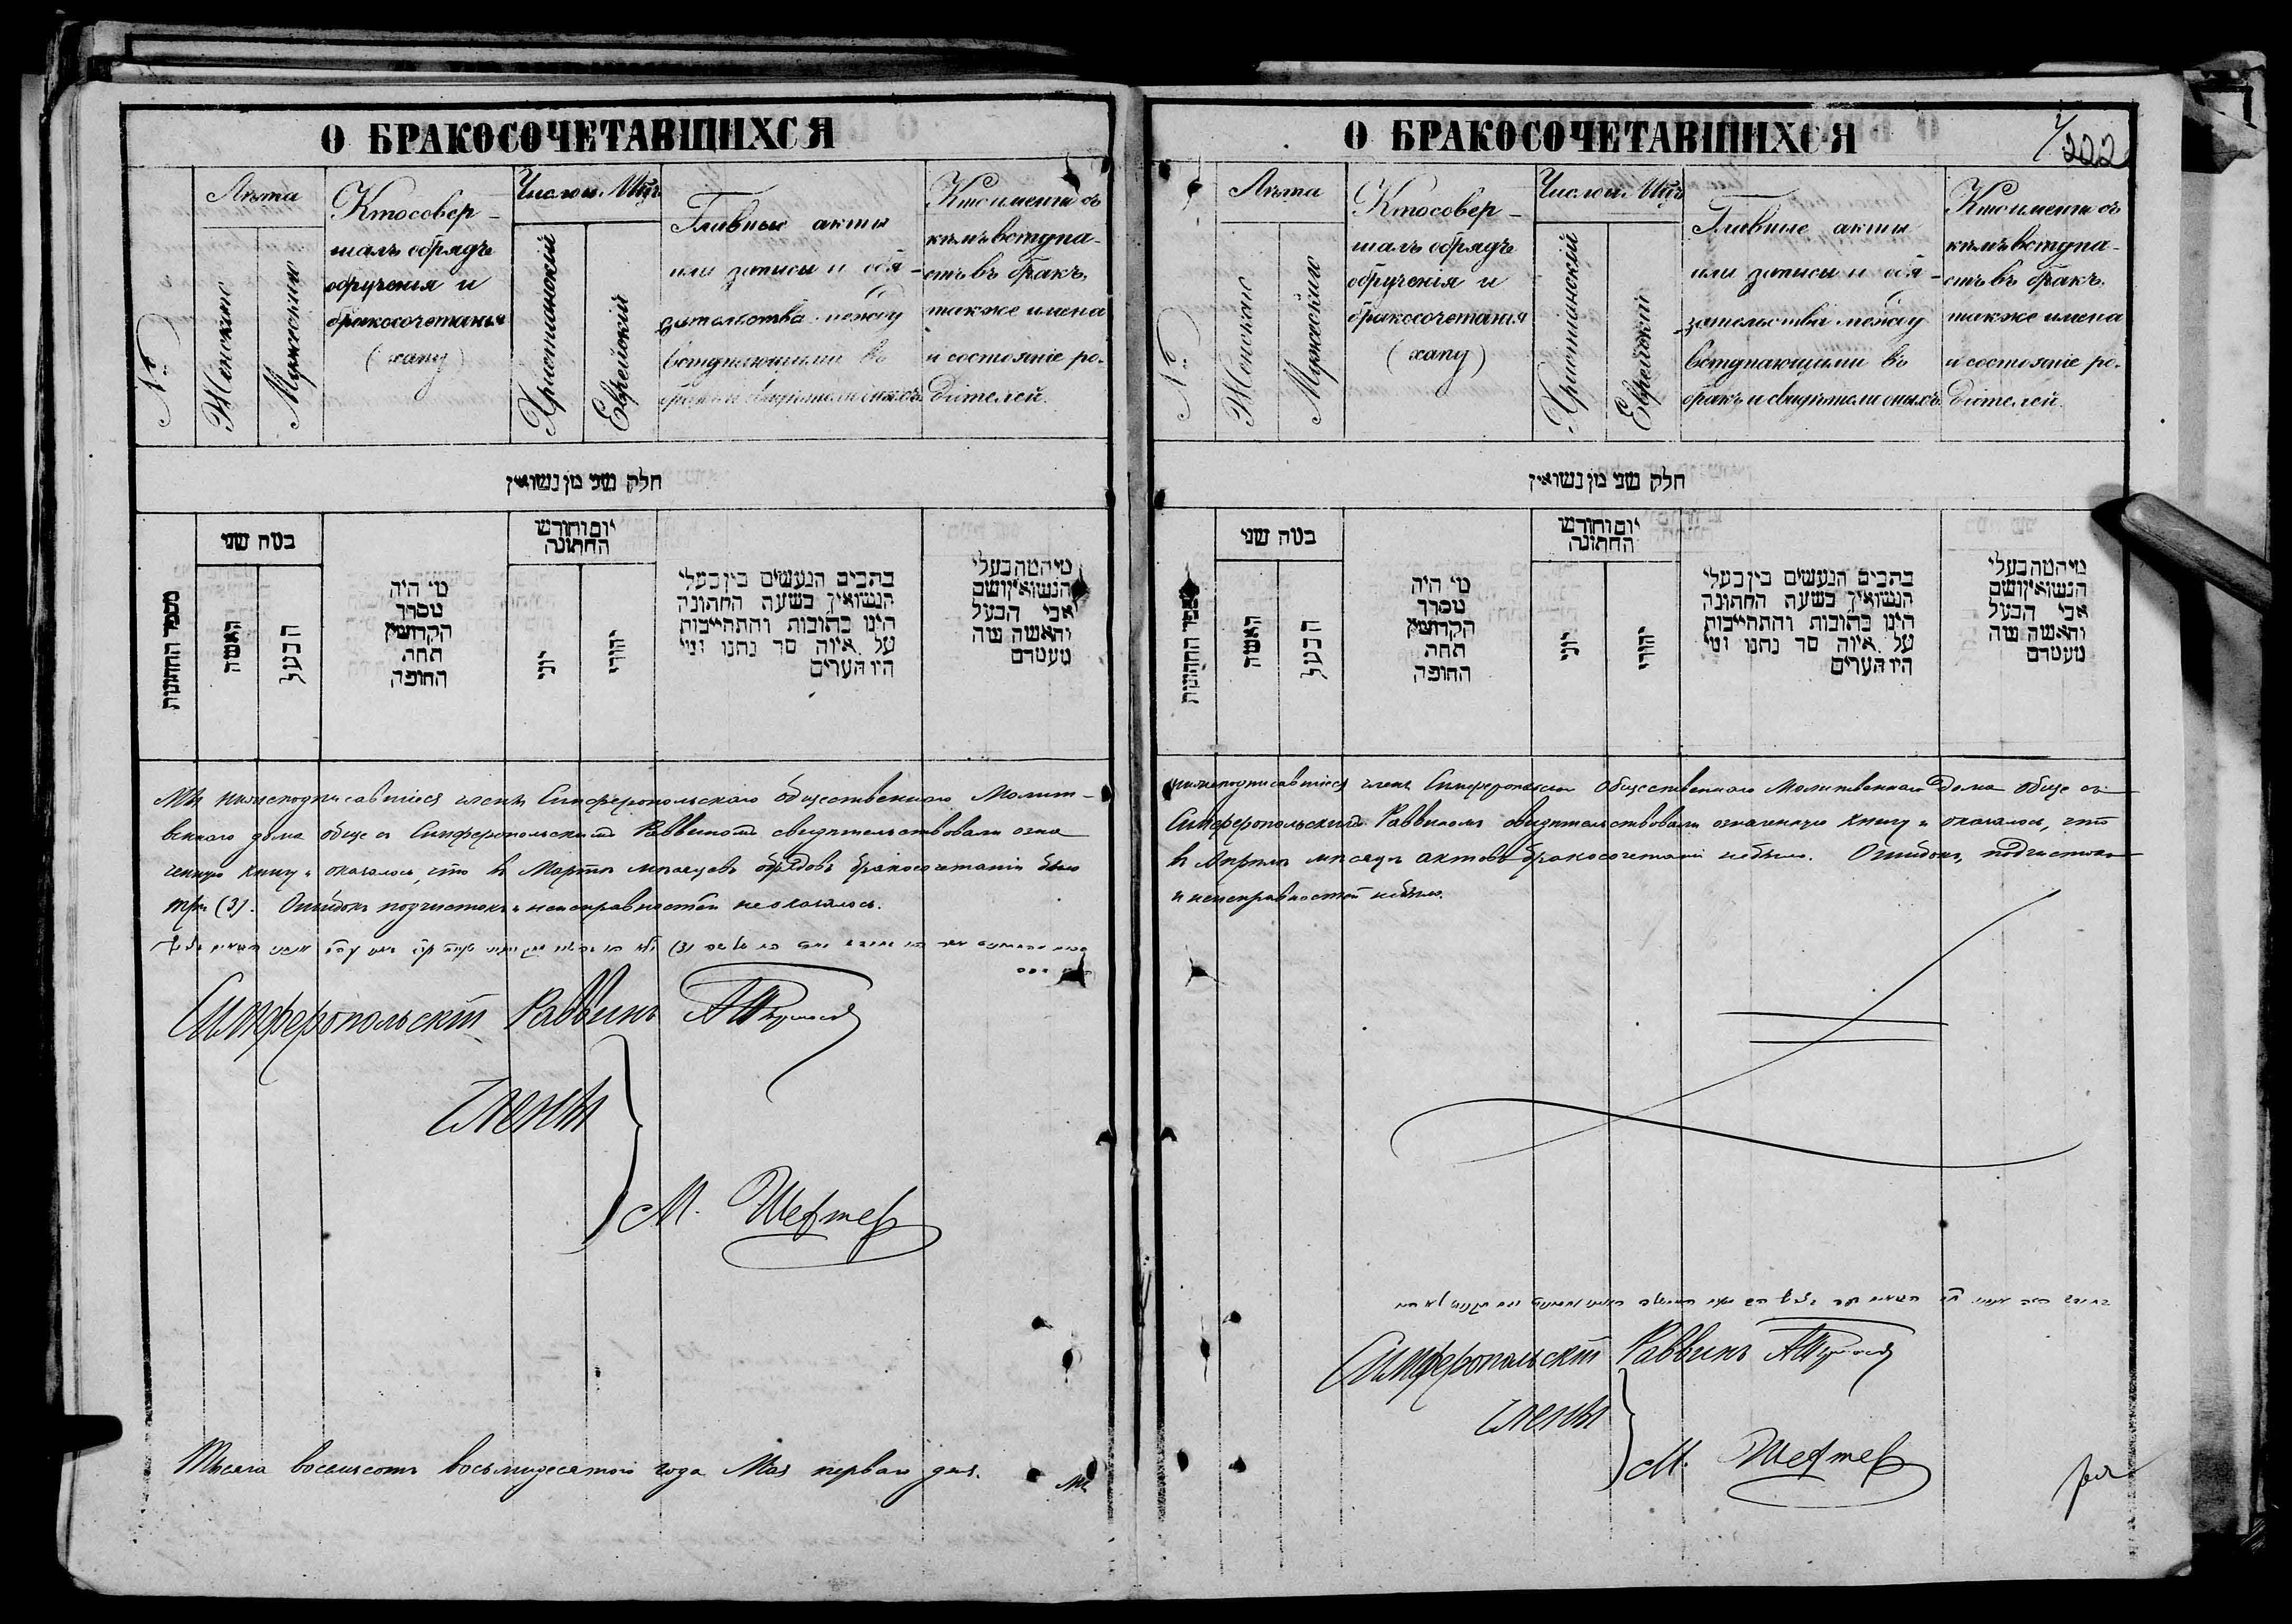 О БРАКОСОЧЕТАВШИХСЯ
№
Лѣта
Женскаго
Мужскаго
Кто совер-
шалъ обрядъ
обрученія и
бракосочетанія
(хапу)
Число и Мцъ
Христіанскій
Еврейскій
Главные акты
или записи и обя-
зательства между
вступающими въ
бракъ и свидѣтели оныхъ
Кто именно съ
кѣмъ вступа-
етъ въ бракъ,
также имена
и состояніе ро-
дителей.
חלק שני מן נשואין
מספר החתונות
כמה שני
האשה
הבעל
מי היה
מסדר
הקדושין
תחת
החופה
יום וחודש
החתונה
יוני
יהודי
כתבים הנעשים בין בעלי
הנשואין בשעת החתונה
היינו כתובות והתחייבות
על איזה סך נתנו ומי
היו העדים
מי המה בעלי
הנשואין ושם
אבי הבעל
והאשה ומה
מעמדם
Мы нижеподписавшіеся члены Симферопольскаго общественнаго Молит-
веннаго дома обще съ Симферопольскимъ Раввиномъ свидѣтельствовали озна
ченную книгу и оказалось, что въ Мартѣ мѣсяцѣ обрядовъ бракосочетаній было
три (3). Ошибокъ подчистокъ и неисправностей не оказалось.
Симферопольскій Раввинъ
Члены
М. Шефтер
Тысяча восемьсотъ восьмидесятого года Мая перваго дня.
Мы
О БРАКОСОЧЕТАВШИХСЯ
222
№
Лѣта
Женскаго
Мужскаго
Кто совер-
шалъ обрядъ
обрученія и
бракосочетанія
(хапу)
Число и Мцъ
Христіанскій
Еврейскій
Главные акты
или записи и обя-
зательства между
вступающими въ
бракъ и свидѣтели оныхъ
Кто именно съ
кѣмъ вступа-
етъ въ бракъ,
также имена
и состояніе ро-
дителей.
חלק שני מן נשואין
מספר החתונות
כמה שני
האשה
הבעל
מי היה
מסדר
הקדושין
תחת
החופה
יום וחודש
החתונה
יוני
יהודי
כתבים הנעשים בין בעלי
הנשואין בשעת החתונה
היינו כתובות והתחייבות
על איזה סך נתנו ומי
היו העדים
מי המה בעלי
הנשואין ושם
אבי הבעל
והאשה ומה
מעמדם
нижеподписавшіеся члены Симферопольскаго Общественнаго Молитвеннаго Дома обще съ
Симферопольскимъ Раввиномъ свидѣтельствовали означенную книгу и оказалось, что
въ Апрѣлѣ мѣсяцѣ актовъ бракосочетаній небыло. Ошибокъ, подчистокъ
и неисправностей небыло.
Симферопольскій Раввинъ
Члены
М. Шефтер